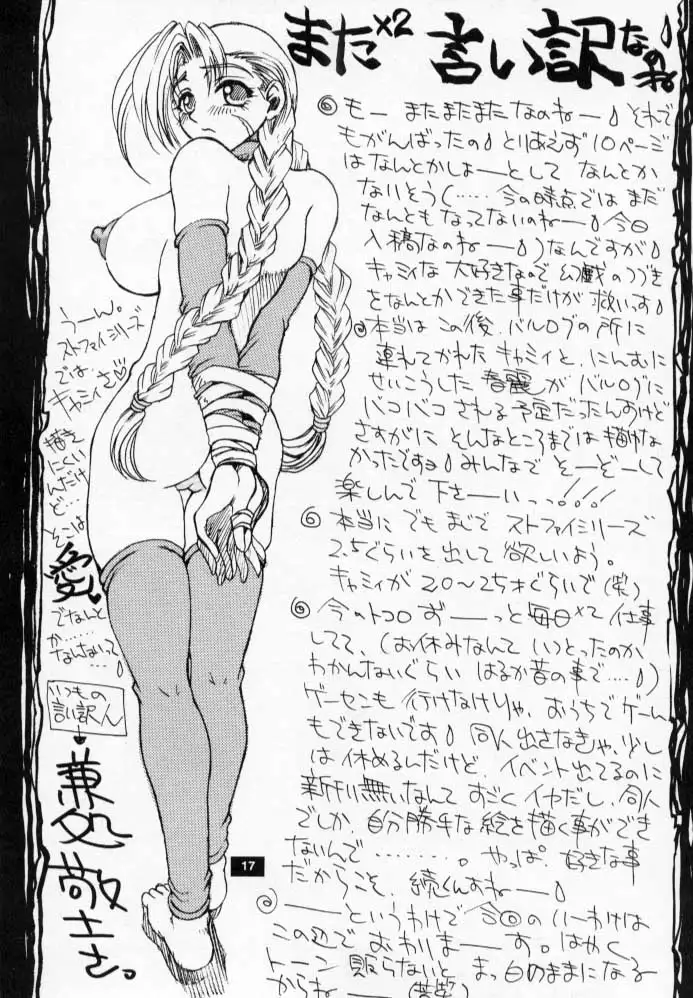 まだ×2 言い訳なのね♪
◎ もー まだまだまだなのねー♪ それで
もがんばったの♪ とりあえず10ページ
はなんとかしよーとして なんとか
ないそう(……今の時点では まだ
なんともなってないのねー♪ 今日
入稿なのねー♪)なんですが♪
キャミィな大好きなので 幻戯のつづき
をなんとかできた事だけが 救いっす♪
◎本当は この後、バルログの所に
連れてかれた キャミィと、にんむに
せいこうした 春麗が バルログに
バコバコ される予定だったんすけど
さすがに そんなところまでは描けな
かったですョ♪ みんなで そーぞーして
楽しんで 下さーいっっ!!!
◎ 本当に でも まじで ストファイシリーズ
2.5ぐらいを出して 欲しいよう。
キャミィが 20〜25才ぐらいで(笑)
◎ 今のトコロ ずーっと 毎日×2 仕事
してて、(お休みなんて いつとったのか
わかんないぐらい はるか昔の事で……♪)
ゲーセンも 行けなけりゃ、おうちでゲーム
もできないです♪ 同人出さなきゃ、少し
は 休めるんだけど、イベント出てるのに
新刊無いなんて すごく イヤだし、同人
でしか、自分勝手な絵を描く事ができ
ないんで………。やっぱ、好きな事
だからこそ、続くんすねー♪
◎ ーというわけで 今回の いーわけは
この辺で おわりまーす。はやく
トーン 貼らないと まっ白のままになる
からねー(苦笑)
うーん。
ストファイシリーズ
では、
キャミィさ♡
描き
にくい
んだけ
ど…
そこは
愛♥
でなんと
か……
なんないって
…♪
いつもの
言い訳人
↓
兼処敬士さ。
17